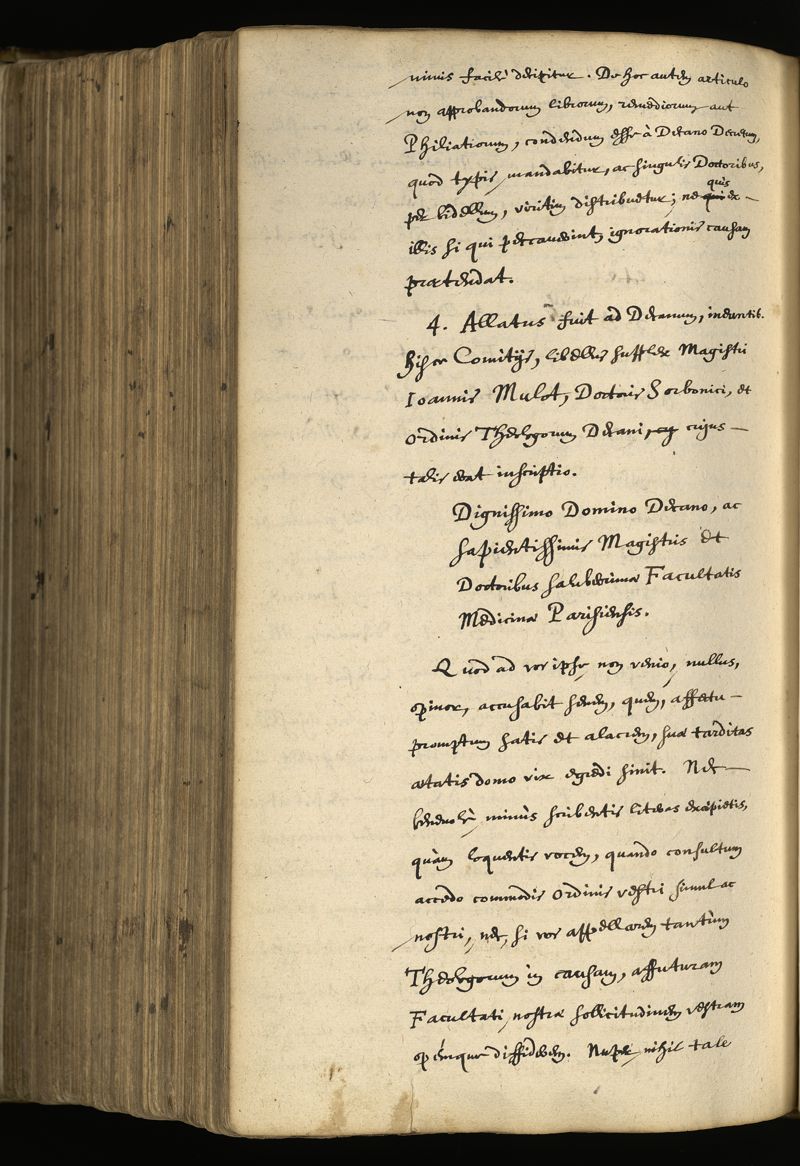 nimis facilè decipitur. De hoc autem articulo
non approbandorum librorum, remediorum aut
Philiatiorum, condendum esse à Decano Decretum,
quod typis mandabitur, ac singulis Doctoribus,
per bidellum, viritim distribuetur; ne quis ex
illis si qui peccaverint ignorationis causam
prætendat.
4. Allatus fuit ad Decanum, ineuntib.
hisce Comitijs, libellus supplex Magistri
Ioannis Mulot, Doctoris Sorbonici, et
ordinis Theologorum Decani, cujus
talis erat inscriptio.
Dignissimo Domino Decano, ac
sapientissimis Magistris et
Doctoribus saluberrimæ Facultatis
Medicinæ Parisiensis.
Quod ad vos ipse non venio, nullus,
opinor, accusabit senem, quem, affectu
promptum satis et alacrem, suæ tarditas
ætatis domo vix egredi sinit. Nec
benevolè minùs scribentis literas excipietis,
quàm loquentis vocem, quando consultum
accedo commodis ordinis vestri simul ac
nostri, nec, si vos appellarem tantùm
Theologorum in causam, affuturam
Facultati nostræ sollicitudinem vestram
opémque diffiderem. Nuper nihil tale